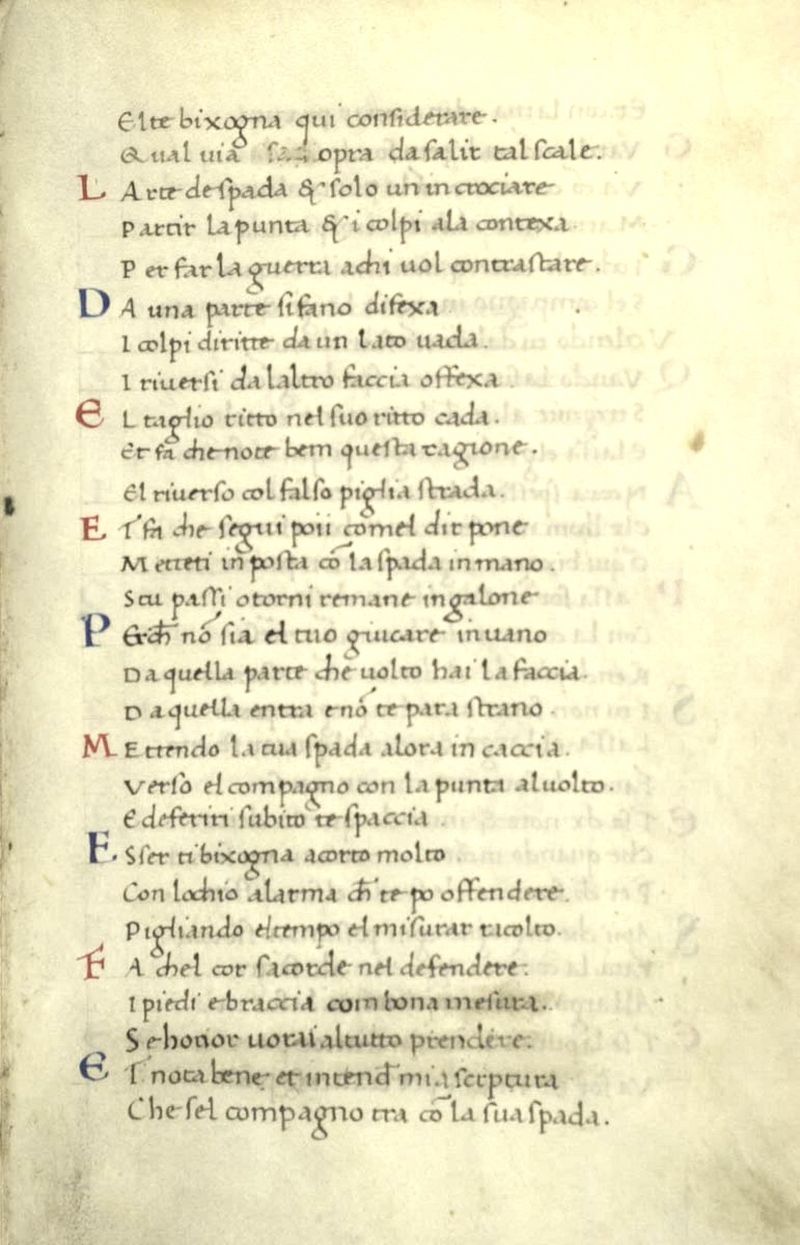 Elte bixogna qui considerare.
Qual uia opra da salir tal scale.
L Arte de spada & solo un incrociare
Partir la punta & i colpi ala contexa
Per far la guerra a chi uol contrastare.
D A una parte si fano difexa
I colpi diritte da un lato uada.
I riuersi da laltro faccia offexa
E L taglio ritto nel suo ritto cada.
Et fa che note bem questa ragione.
El riuerso col falso piglia strada.
E T fa che segui poii comel dir pone
Metteti in posta cō la spada in mano.
Stu passi o torni remane in galone
P Erch̄ nō sia el tuo giucare in uano
Da quella parte che uolto hai la faccia.
Da quella entra e nō te para strano
M Ettendo la tua spada alora in caccia.
Verso el compagno con la punta al uolto.
E de ferirr subito te spaccia
E. Sser ti bixogna acorto molto
Con lochio alarma ch̄ te po offendere.
Pigliando el tempo el misurar ricolto.
F A chel cor sacorde nel defendere.
I piedi e braccia com bona mesura.
Se honor uorai al tutto prendere.
E T nota bene et intend mia scrptura
Che sel compagno tra cō la sua spada.